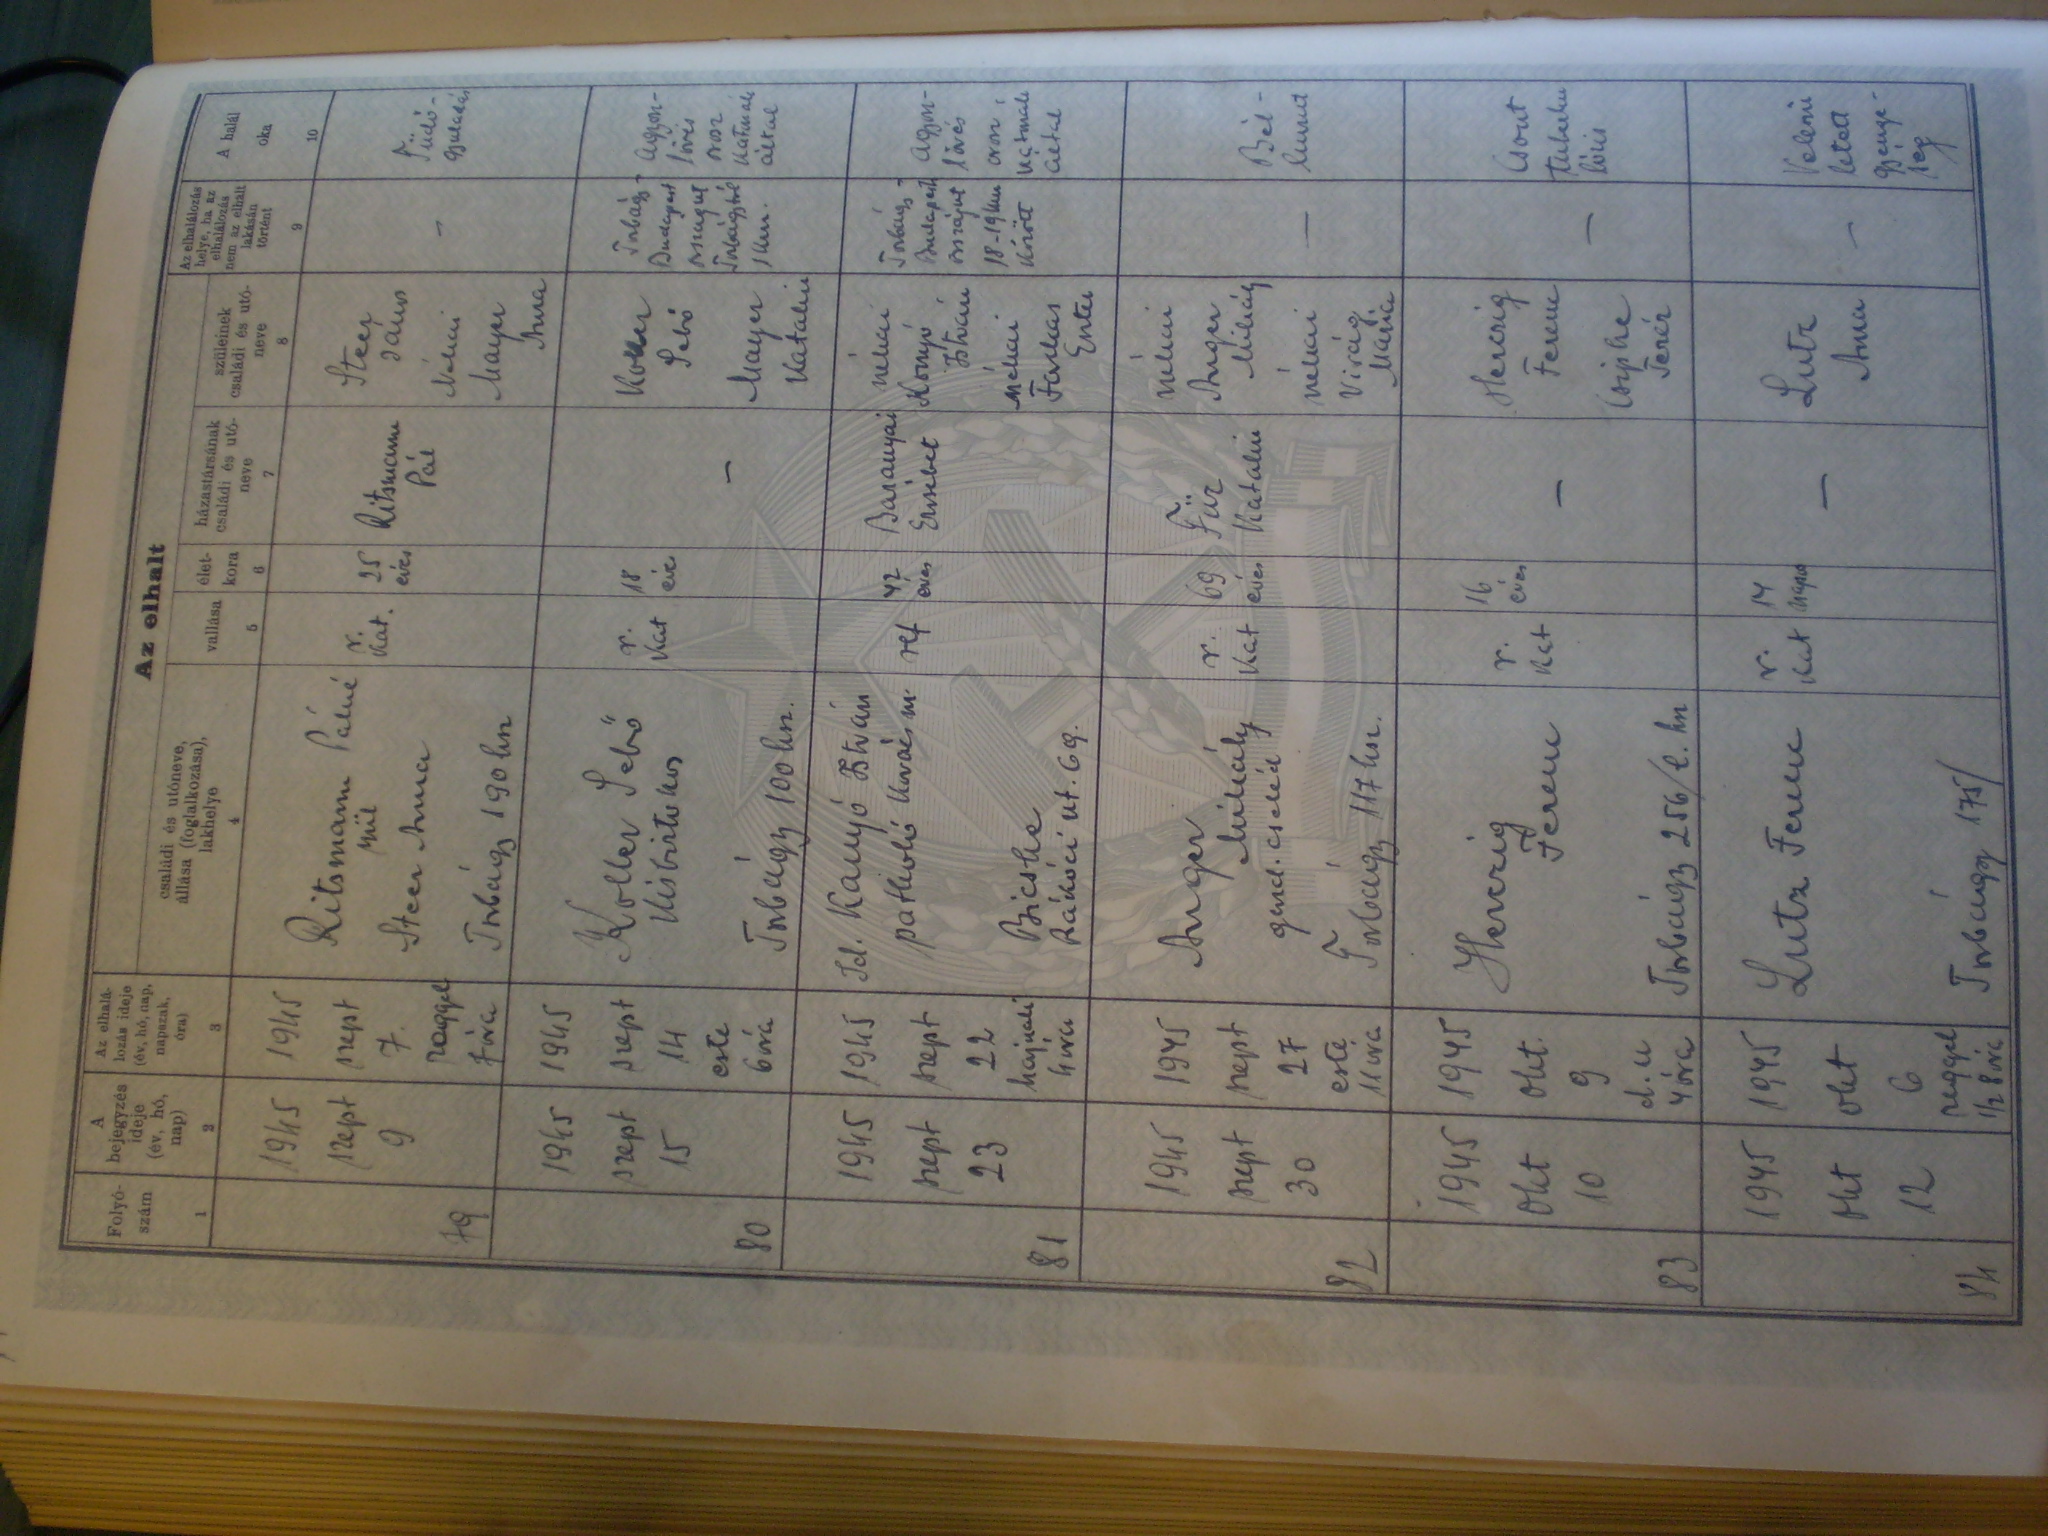 Az elhalt
Folyó-
szám
A
bejegyzés
ideje
(év, hó,
nap)
Az elhalá-
lozás ideje
(év, hó, nap,
napszak,
óra)
családi és utóneve,
állása (foglalkozása),
lakhelye
vallása
élet-
kora
házastársának
családi és utó-
neve
szüleinek
családi és utó-
neve
Az elhalálozás
helye, ha az
elhalálozás
nem az elhalt
lakásán
történt
A halál
oka
1
2
3
4
5
6
7
8
9
10
79
1945
szept
9
1945
szept
7.
reggel
7 óra
Ritsmann Pálné
szül
Steer Anna
Torbágy 190 hsz
r.
kat.
25
éves
Ritsmann
Pál
Steer
János
Néhai
Mayer
Anna
—
Tüdő-
gyuladás
80
1945
szept
15
1945
szept
14
este
6 óra
Koller Sebő
Kisbirtokos
Torbágy 100 hsz.
r.
kat
18
éves
—
Koller
Sebő
Mayer
Katalin
Torbágy-
Budapest
országút
Torbágytól
1 km.
agyon-
lövés
orosz
katonák
által
81
1945
szept
23
1945
szept
22
hajnali
4 óra
Id. Kanyó István
patkoló kovács m
Bicske
Rákóci ut. 69.
ref
42
éves
Baranyai
Erzsébet
néhai
Konyó
István
néhai
Farkas
Eszter
Torbágy-
Budapest
országút
18-19 km
között
agyon-
lövés
orosz
katonák
által
82
1945
szept
30
1945
szept
27
este
11 óra
Anger
Mihály
gazd. cseléd
Torbágy 117 hsz.
r.
kat
69
éves
Für
Katalin
néhai
Anger
Mihály
néhai
Virág
Mária
—
Bél-
hurut
83
1945
Okt
10
1945
Okt.
9
d. u
4 óra
Herczig
Ferenc
Torbágy 256/l. hsz
r.
kat
16
éves
—
Herczig
Ferenc
Csipke
Teréz
—
Csont
tuberku
lózis
84
1945
Okt
12
1945
okt
6
reggel
1/2 8 óra
Lutz Ferenc
Torbágy 175/
r.
kat
14
napos
—
Lutz
Anna
—
Velem
letett
gyenge-
ség